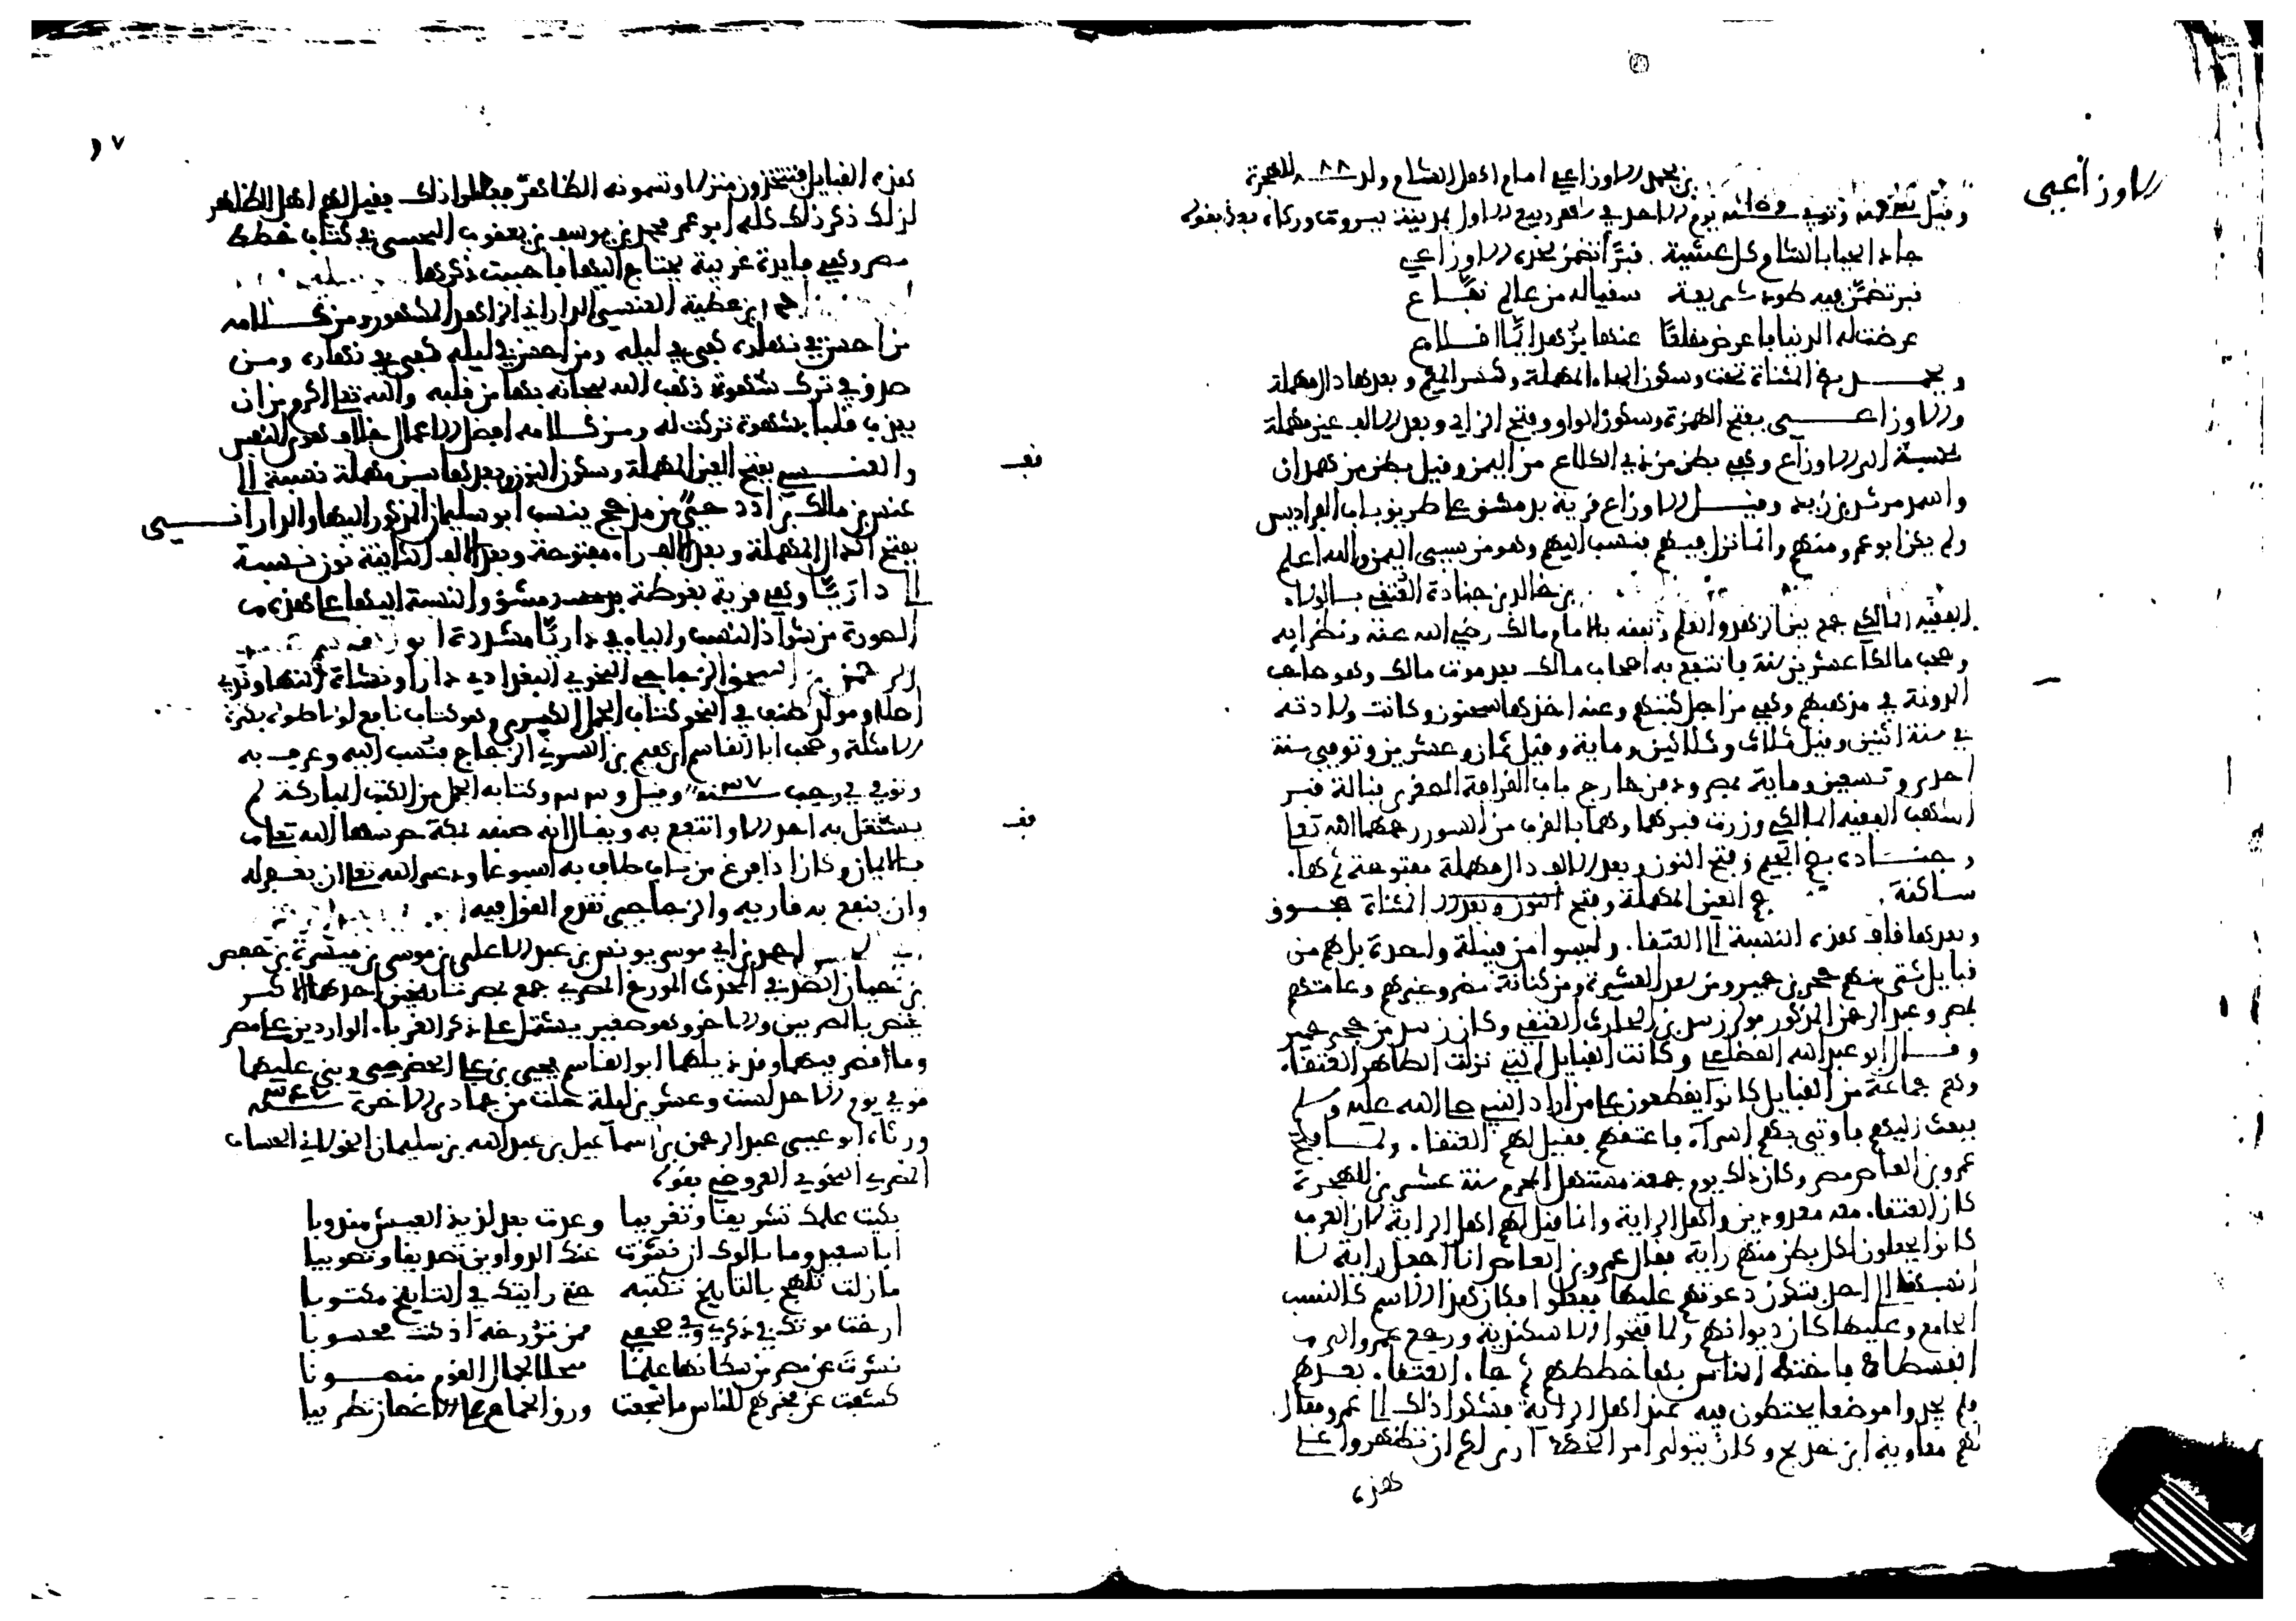 الاوزاعي
بن يحمد الاوزاعي امام اهل الشام ولد ٨٨ للهجرة
وقيل وتوفي يوم الاحد في شهر ربيع الاول بمدينة بيروت ورثاه بعضهم بقوله
جاد الحيا بالشام كل عشية قبرا تضمن لحده الاوزاعي
قبر تضمن فيه طود شريعة سقيا له من عالم نفاع
عرضت له الدنيا فاعرض مقلعا عنها بزهد ايما اقلاع
ويحمد بضم المثناة تحت وسكون الحاء المهملة وكسر الميم وبعدها دال مهملة
والاوزاعي بفتح الهمزة وسكون الواو وفتح الزاي وبعد الالف عين مهملة
نسبة الى الاوزاع وهي بطن من ذي الكلاع من اليمن وقيل بطن من همدان
واسمه مرثد بن زيد وقيل الاوزاع قرية بدمشق على طريق باب الفراديس
ولم يكن ابو عمرو منهم وانما نزل فيهم فنسب اليهم وهو من سبي اليمن والله اعلم
بن خالد بن جنادة العتقي بالولاء
الفقيه المالكي جمع بين الزهد والعلم وتفقه بالامام مالك رضي الله عنه ونظرايه
وصحب مالكا عشرين سنة وانتفع به اصحاب مالك بعد موت مالك وهو صاحب
المدونة في مذهبهم وهي من اجل كتبهم وعنه اخذها سحنون وكانت ولادته
في سنة اثنين وقيل ثلاث وثلاثين وماية وقيل ثمان وعشرين وتوفي سنة
احدى وتسعين وماية بمصر ودفن خارج باب القرافة الصغرى قبالة قبر
اشهب الفقيه المالكي وزرت قبرهما وهما بالقرب من السور رحمهما الله تعلى
وجنادة بضم الجيم وفتح النون وبعد الالف دال مهملة مفتوحة ثم هاء
ساكنة بضم العين المهملة وفتح المثناة فوق
وبعدها قاف هذه النسبة الى العتقاء وليسوا من قبيلة واحدة بل هم من
قبايل شتى منهم حجر بن حمير ومن سعد العشيرة ومن كنانة مضر وغيرهم وعامتهم
بمصر وعبد الرحمن المذكور مولى زبيد بن الحارث العتقي وكان زبيد من حجر حمير
وقال ابو عبد الله القضاعي وكانت القبايل التي نزلت الظاهر العتقاء
وهم جماعة من القبايل كانوا يقطعون على من اراد النبي صلى الله عليه وسلم
فبعث اليهم فاوتي بهم اسراء فاعتقهم فقيل لهم العتقاء ولما فتح
عمرو بن العاص مصر وكان ذلك يوم جمعة مستهل المحرم سنة عشرين للهجرة
كان العتقاء معه معدودين واهل الراية وانما قيل لهم اهل الراية لان العرب
كانوا يجعلون لكل بطن منهم راية فقال عمرو بن العاص انا اجعل راية لا
انسبها الى احد فتكون دعوتهم عليها ففعلوا فكان هذا الاسم كالنسب
الجامع وعليها كان ديوانهم ولما فتحوا الاسكندرية ورجع عمرو الى
الفسطاط فاختط الناس بها خططهم ثم جاء العتقاء بعدهم
ولم يجدوا موضعا يختطون فيه عند اهل الراية فشكوا ذلك الى عمرو فقال
لهم معاوية ابن خديج وكان يتولى امر الخطط ارى لكم ان تظهروا على
هذه
١٧
هذه القبايل فتتخذون منزلا وتسمونه الظاهر ففعلوا ذلك فقيل لهم اهل الظاهر
لذلك ذكر ذلك كله ابو عمر محمد بن يوسف بن يعقوب في كتاب خطط
مصر وهي فايدة غريبة يحتاج اليها فاحببت ذكرها
احمد ابن عطية العنسي الداراني الزاهد المشهور ومن كلامه
من احسن في نهاره كفي في ليله ومن احسن في ليله كفي في نهاره ومن
صدق في ترك شهوة ذهب الله سبحانه بها من قلبه والله تعلى اكرم من ان
يعذب قلبا بشهوة تركت له ومن كلامه افضل الاعمال خلاف هوى النفس
والعنسي بفتح العين المهملة وسكون النون وبعدها سين مهملة نسبة الى
عنس بن مالك بن ادد حي من مذحج ينسب ابو سليمان المذكور اليها والداراني
بفتح الدال المهملة وبعد الالف راء مفتوحة وبعد الالف الثانية نون نسبة
الى داريا وهي قرية بغوطة دمشق والنسبة اليها على هذه
الصورة من شواذ النسب والياء في داريا مشددة
الرحمن بن اسحق الزجاجي النحوي البغدادي دارا ونشاة النهاوندي
اصلا ومولدا صنف في النحو كتاب الجمل الكبرى وهو كتاب نافع لولا طوله بكثرة
الامثلة وصحب ابا القاسم ابراهيم بن السري الزجاج فنسب اليه وعرف به
وتوفي في رجب ٣٧ سنة وقيل وكتابه الجمل من الكتب المباركة لم
يشتغل به احد الا وانتفع به ويقال انه صنفه بمكة حرسها الله تعلى
وكان اذا فرغ من باب طاف به اسبوعا ودعى الله تعلى ان يغفر له
وان ينفع به قاريه والزجاجي تقدم القول فيه
احمد بن ابي موسى يونس بن عبد الاعلى بن موسى بن ميسرة بن حفص
بن حيان الصدفي المحدث المورخ المصري جمع بمصر تاريخين احدهما الاكبر
يختص بالمصريين والاخر وهو صغير يشتمل على ذكر الغرباء الواردين على مصر
وما اقصر فيهما وقد ذيلهما ابو القاسم يحيى بن علي الحضرمي وبنى عليهما
توفي يوم الاحد لست وعشرين ليلة خلت من جمادى الاخرة
ورثاه ابو عيسى عبد الرحمن بن اسماعيل بن عبد الله بن سليمان الخولاني الخشاب
المصري النحوي العروضي بقوله
بكيت علمك تشريقا وتغريبا وعدت بعد لذيذ العيش مندوبا
ابا سعيد وما نالوك ان نشرت عنك الدواوين تصديقا وتصويبا
ما زلت تلهج بالتاريخ تكتبه حتى رايتك في التاريخ مكتوبا
ارخت موتك في ذكري وفي صحفي لمن يؤرخه اذ كنت محسوبا
نشرت عن مصر من سكانها علما مبجلا لجمال القوم منصوبا
كشفت عن فخرهم للناس ما سجعت ورق الحمام على الاغصان تطريبا